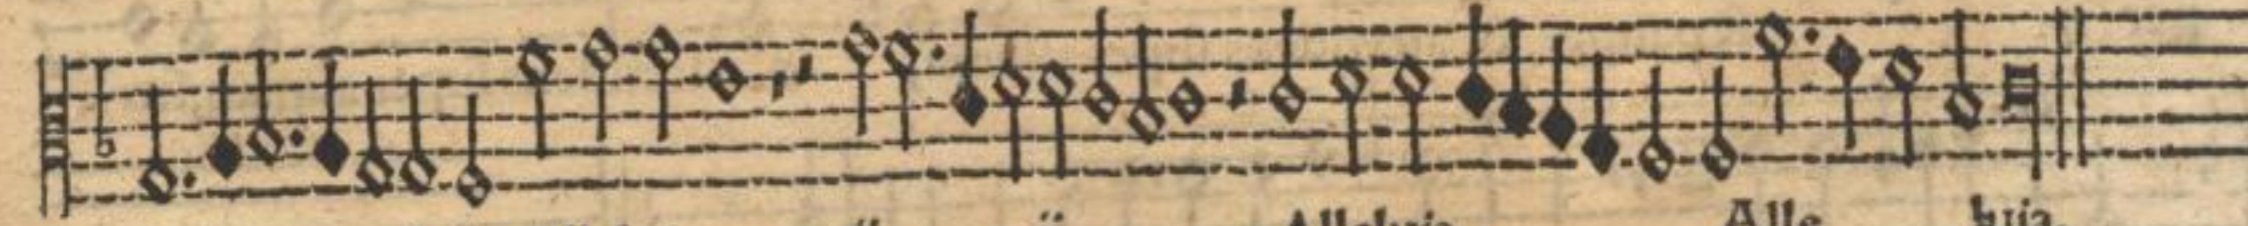 ij ij Alleluia Alle luia.